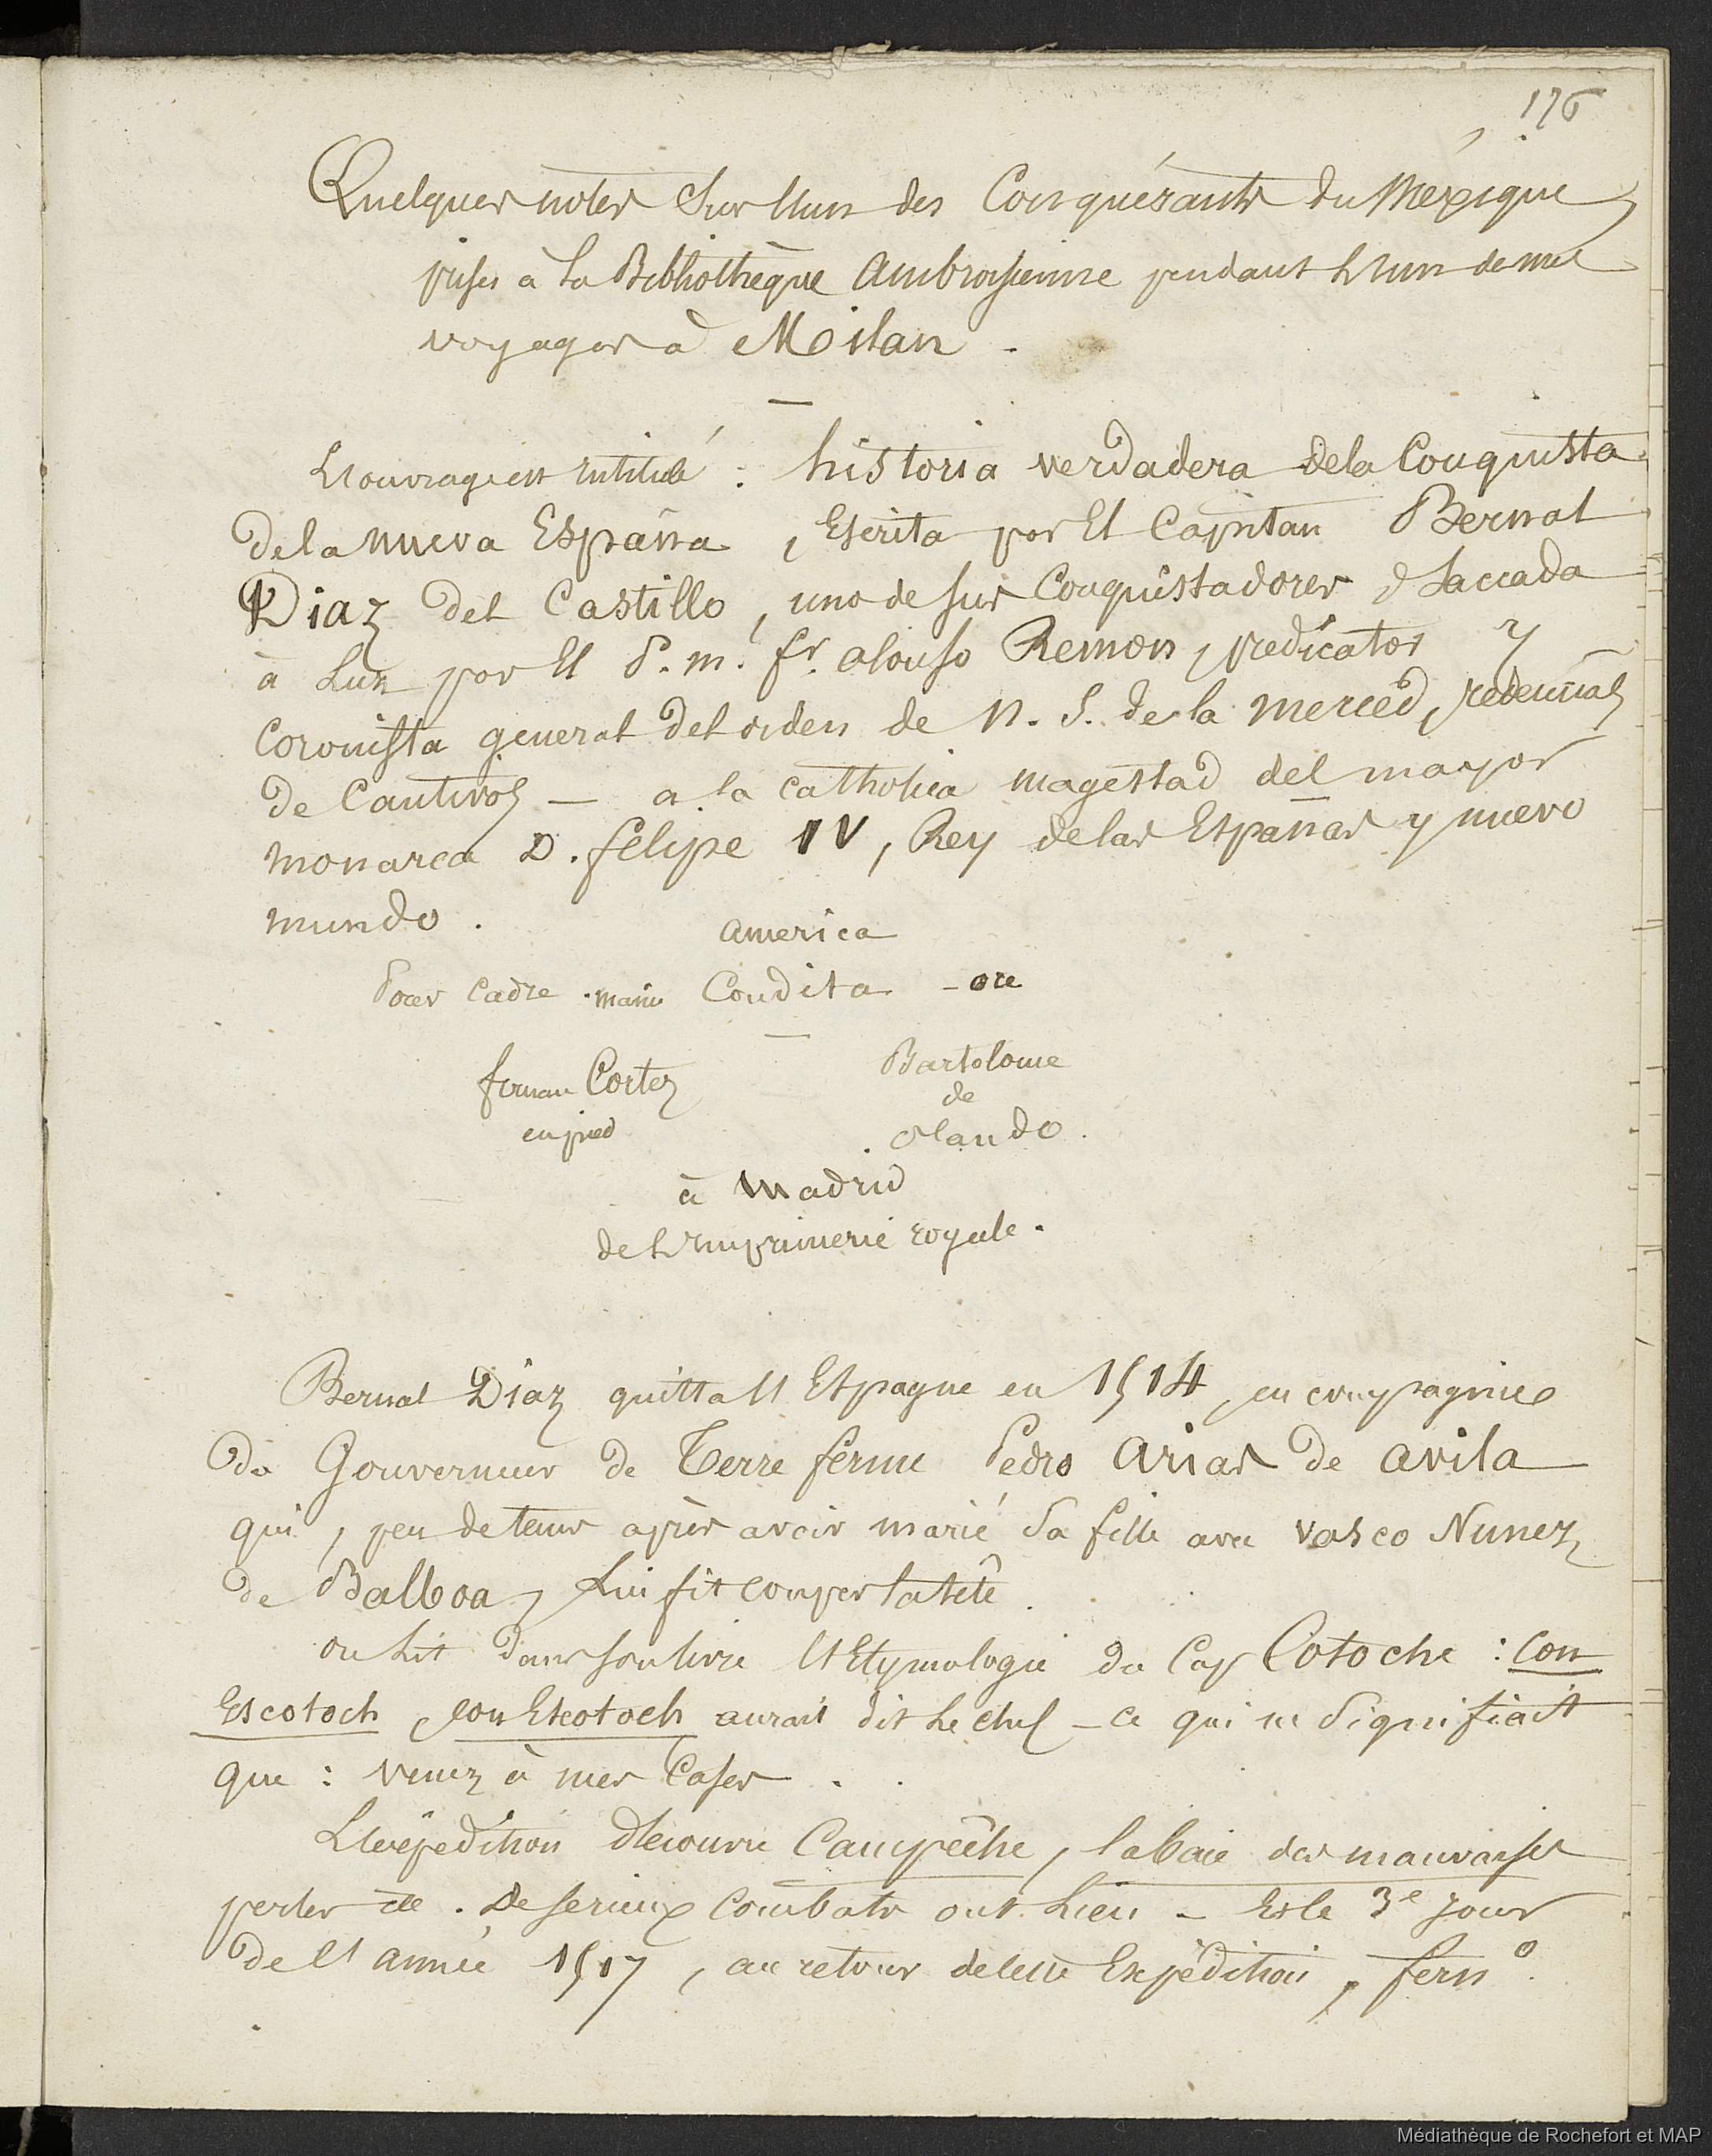 176
Quelques notes sur l'un des Conquérants du Méxique
prises à la Bibliothèque Ambroisienne pendant l'un de mes
voyages à Milan -
L'ouvrage est intitulé : historia verdadera de la Conquista
de la nueva España, Escrita por El Capitan Bernal
Diaz del Castillo, uno de sus Conquistadores & saccada
à luz por El P. M. fr. alonso Remon, predicator y
Coronista general del orden de N. S. de la merced,
de Cautivos — a la catholica magestad del mayor
monarca D. felipe IV, Rey de las Españas y nuevo
mundo.
America
Pour Cadre . manu Condita - ore
fernan Cortez
en pied
Bartolome
de
Olando.
à Madrid
de l'Imprimerie royale.
Bernal Diaz quitta l'Espagne en 1514, en compagnie
du Gouverneur de Terre ferme Pedro Arias de Avila
qui, peu de tems après avoir marié sa fille avec Vasco Nunez
de Balboa, lui fit couper la tête.
on lit dans son livre l'Etymologie du Cap Cotoche : Con
Escotoch, con Escotoch aurait dit le chef - ce qui ne signifiait
que : venez à mes Cases.
L'expédition découvre Campêche, la baie des mauvaises
. De serieux Combats ont lieu - Et le 3e jour
de l'année 1517, au retour de cette Expédition, fern°.
Médiathèque de Rochefort et MAP